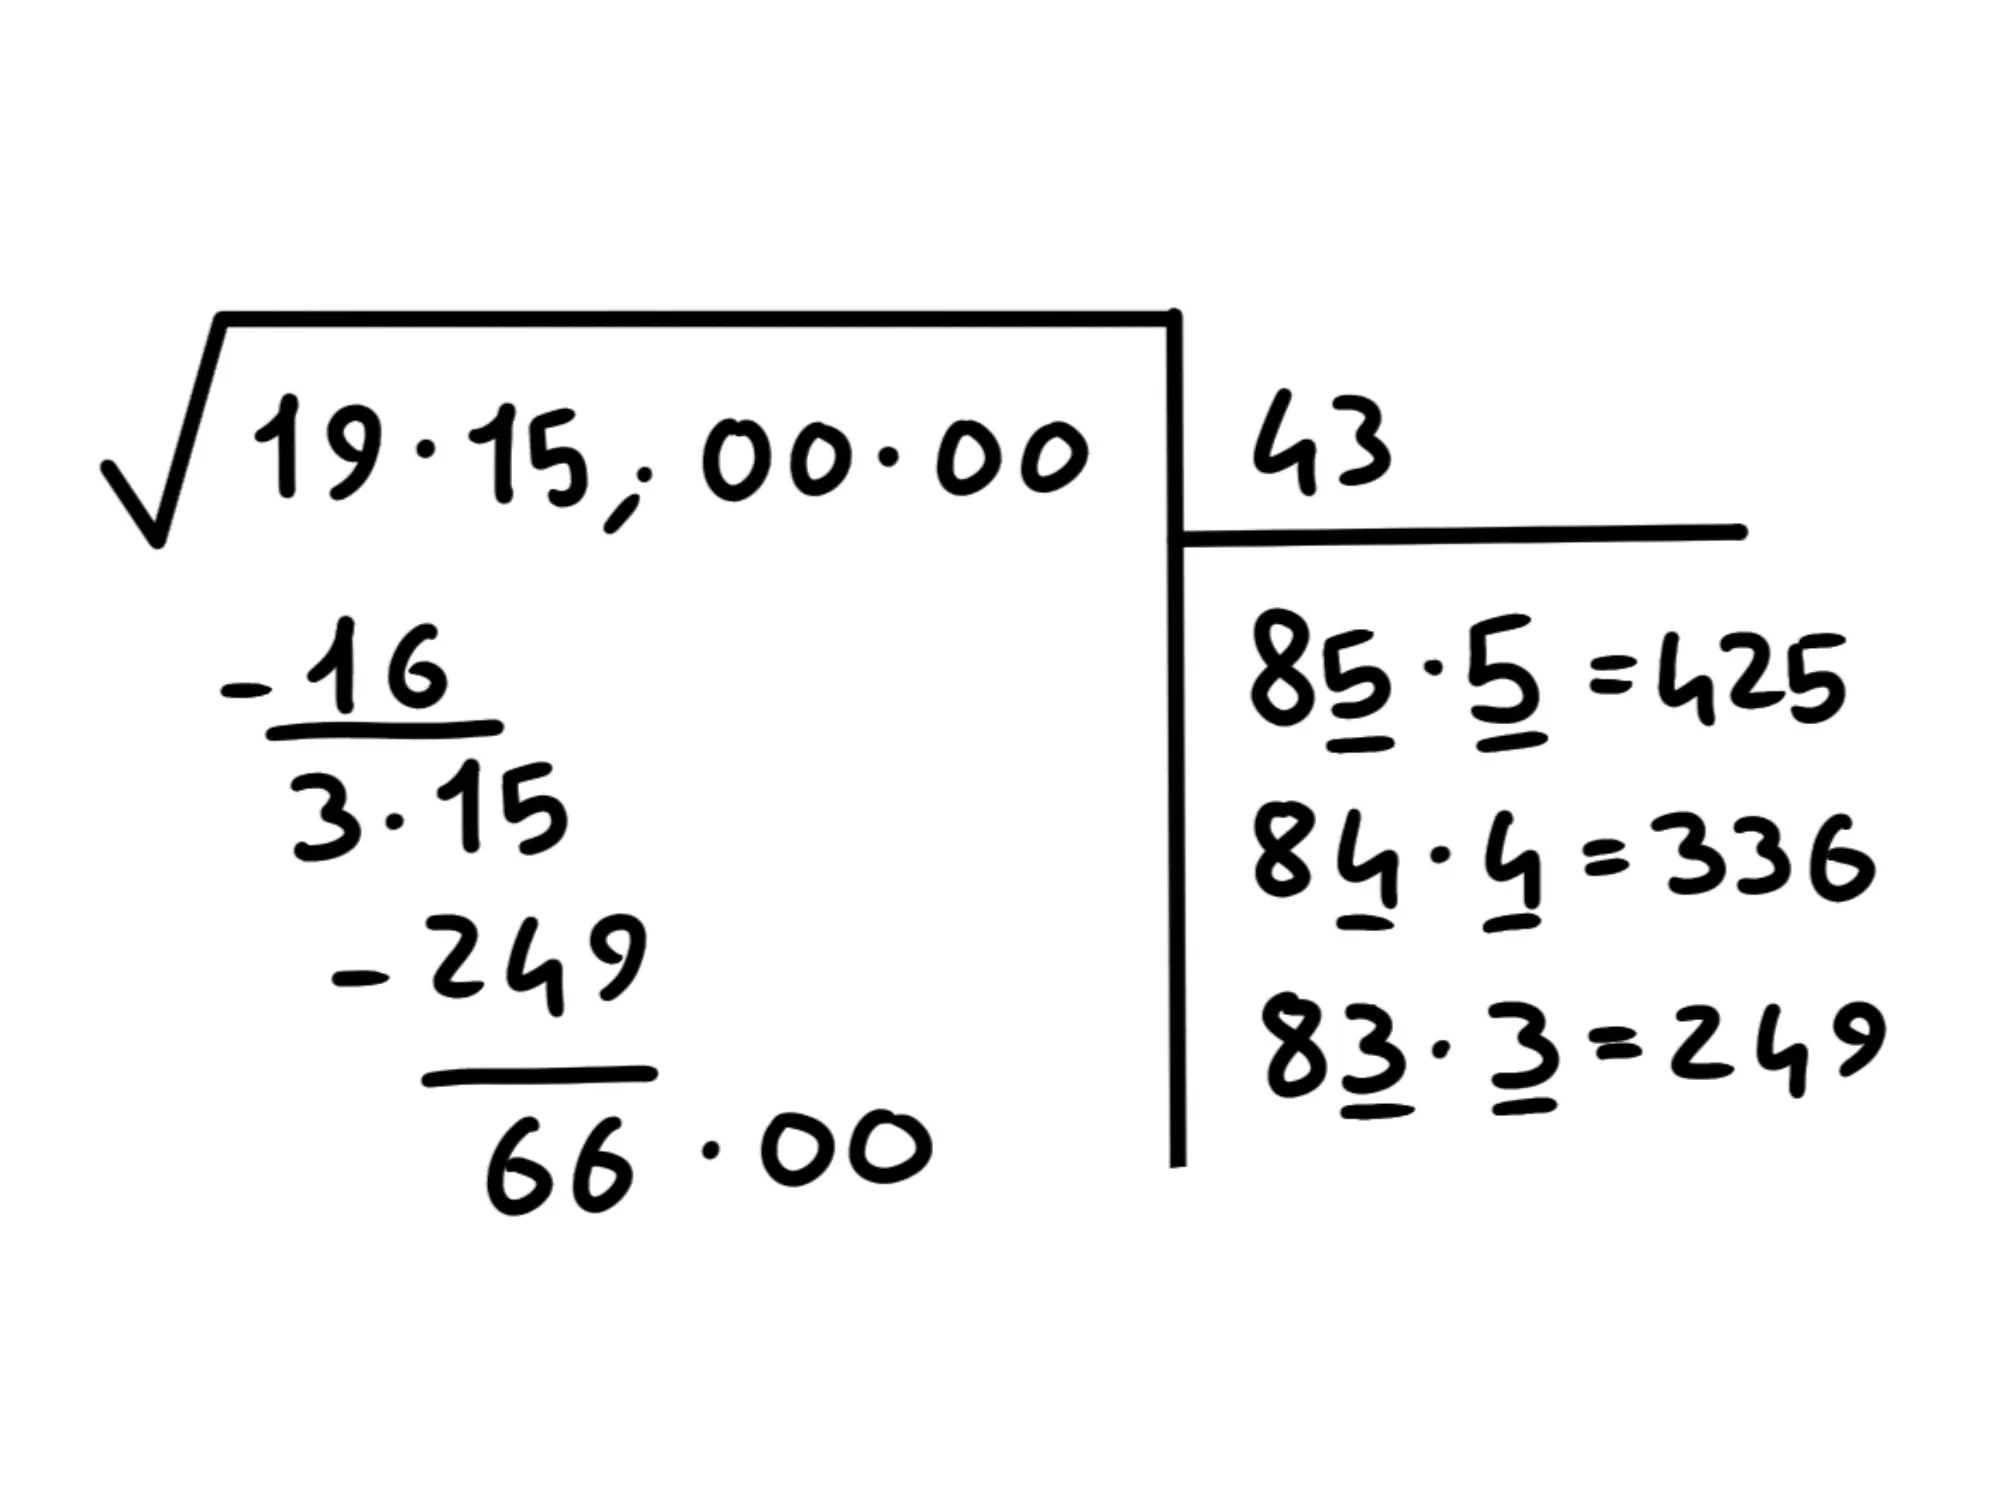 √19·15,.00·00 43
-16
3·15
-249
66·00
85·5=425
84·4=336
83·3=249